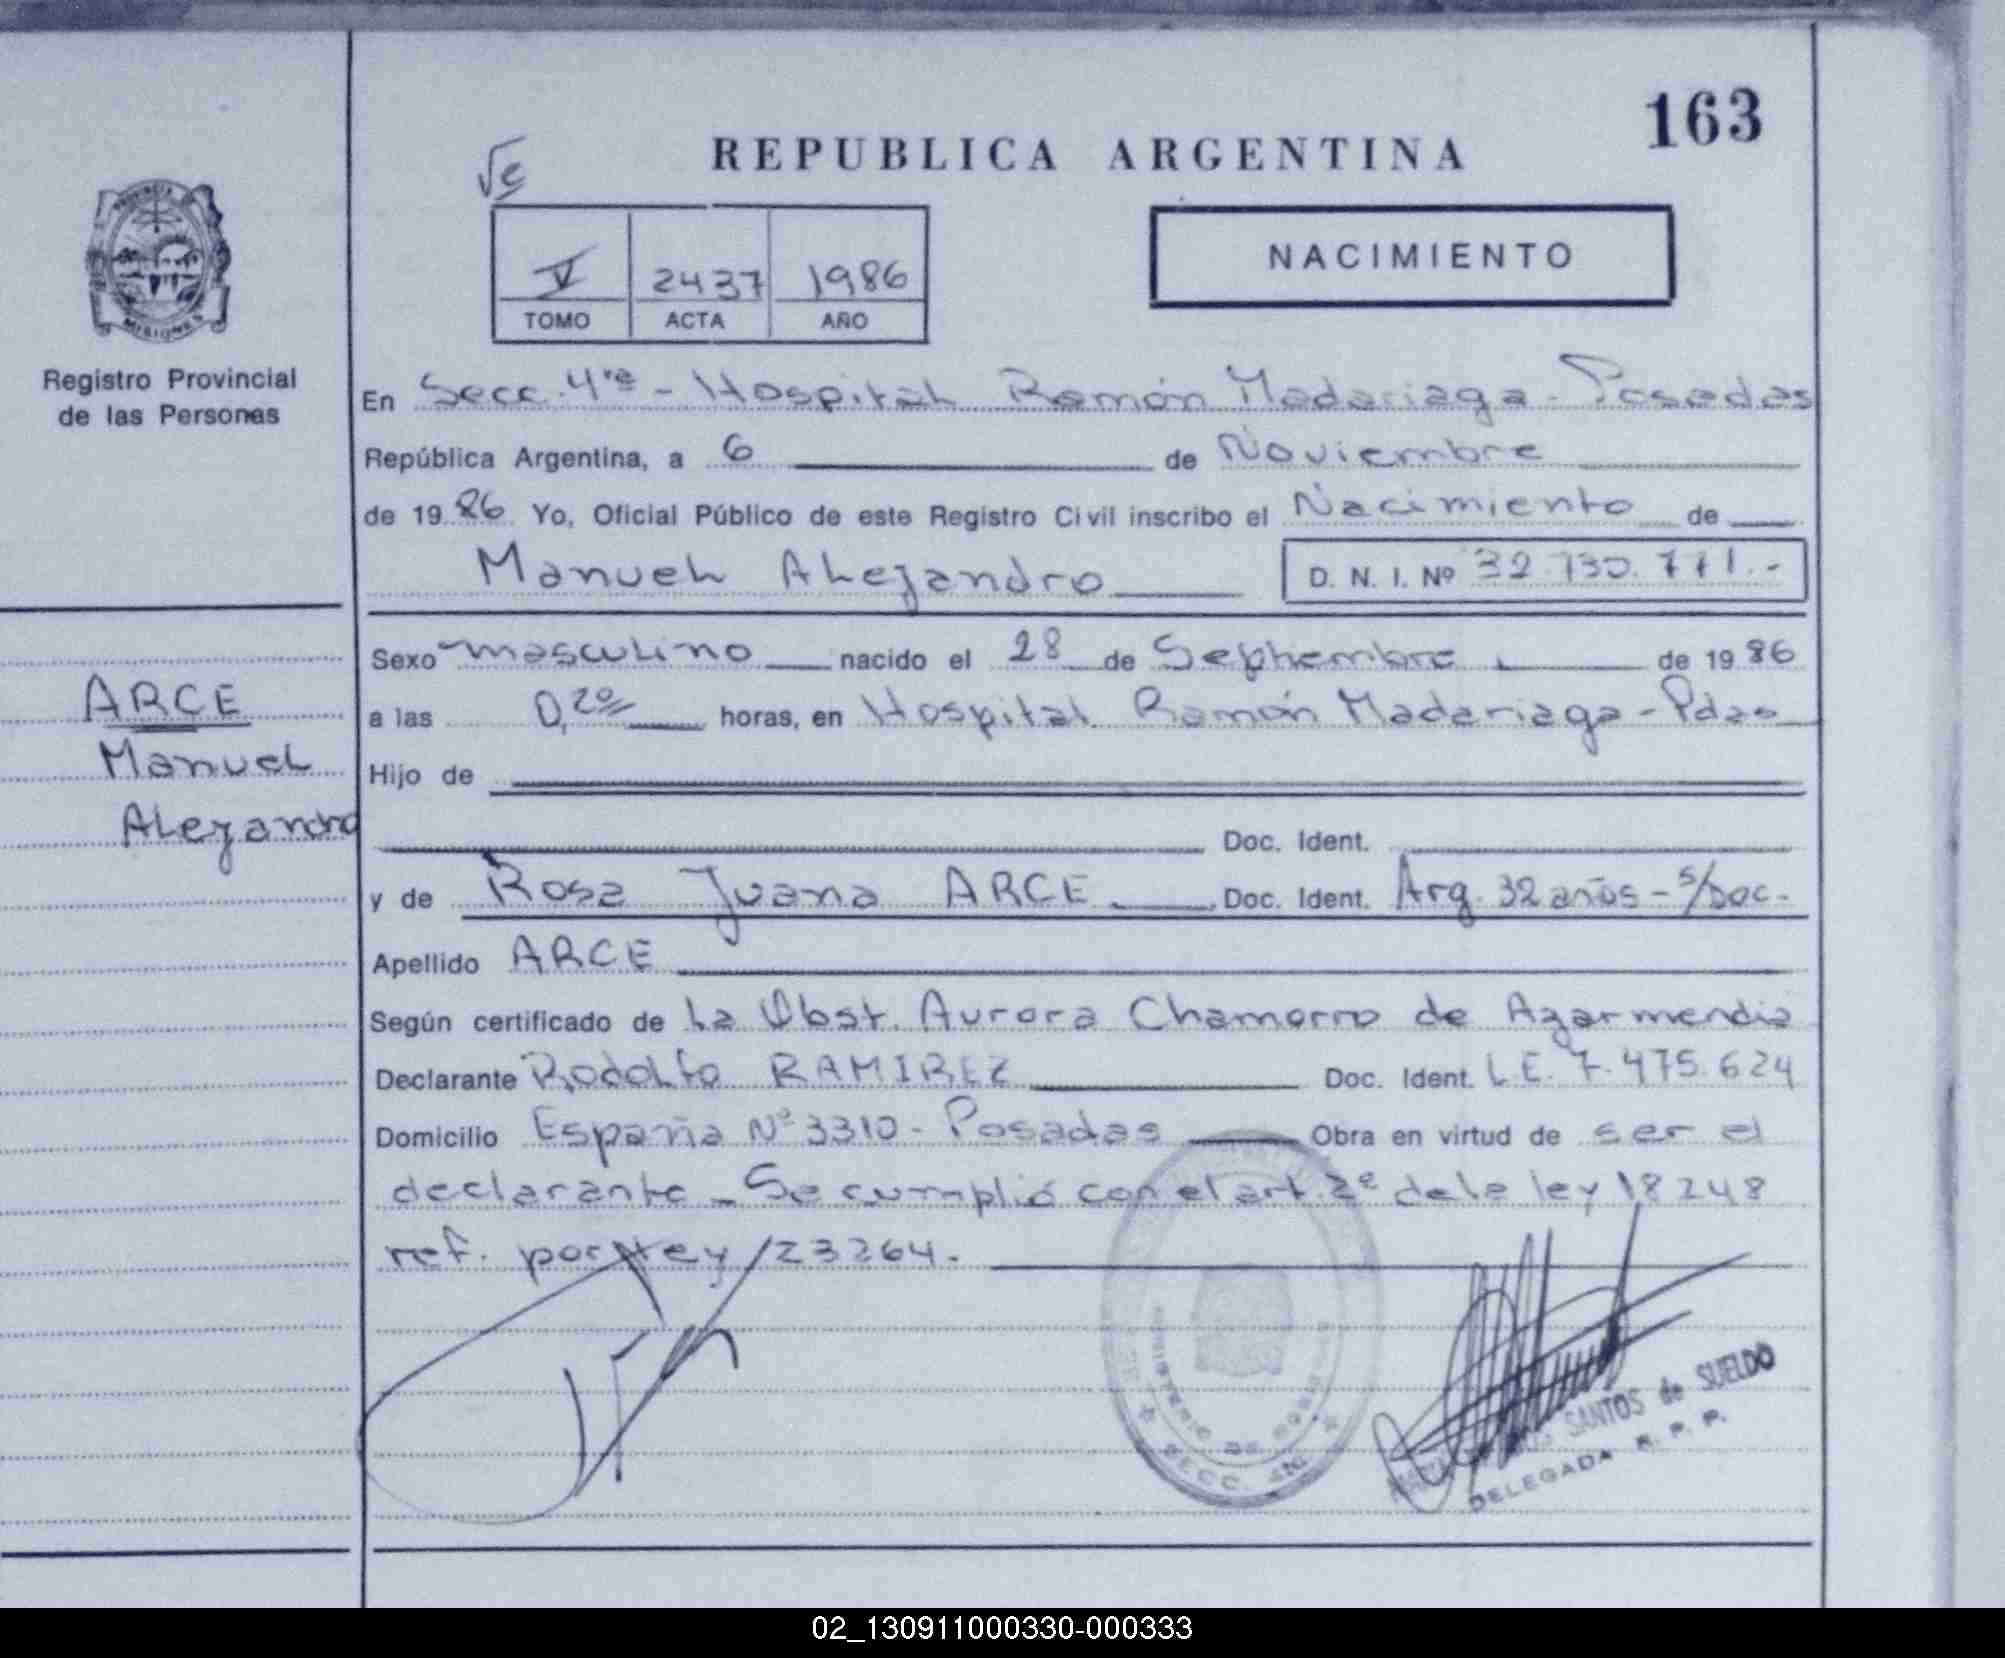 163
REPUBLICA ARGENTINA
V 2437 1986
TOMO ACTA AÑO
NACIMIENTO
MISIONES
Registro Provincial
de las Personas
En Secc. 4ta - Hospital Ramón Madariaga - Posadas
República Argentina, a 6 de Noviembre
de 1986 Yo, Oficial Público de este Registro Civil inscribo el Nacimiento de
Manuel Alejandro D. N. I. Nº 32.730.771.-
ARCE
Manuel
Alejandro
Sexo masculino nacido el 28 de Septiembre de 1986
a las 0,20 horas, en Hospital Ramón Madariaga - Pdas
Hijo de
Doc. Ident.
y de Rosa Juana ARCE Doc. Ident. Arg. 32 años - s/Doc.
Apellido ARCE
Según certificado de La Obst. Aurora Chamorro de Agarmendia
Declarante Rodolfo RAMIREZ Doc. Ident. L.E. 7.475.624
Domicilio España Nº 3310 - Posadas Obra en virtud de ser el
declarante - Se cumplió con el art. 2º de la ley 18248
ref. por ley 23264.
MINISTERIO DE GOBIERNO
SECC. 4ta
SANTOS de SUELDO
DELEGADA R. P. P.
02_130911000330-000333